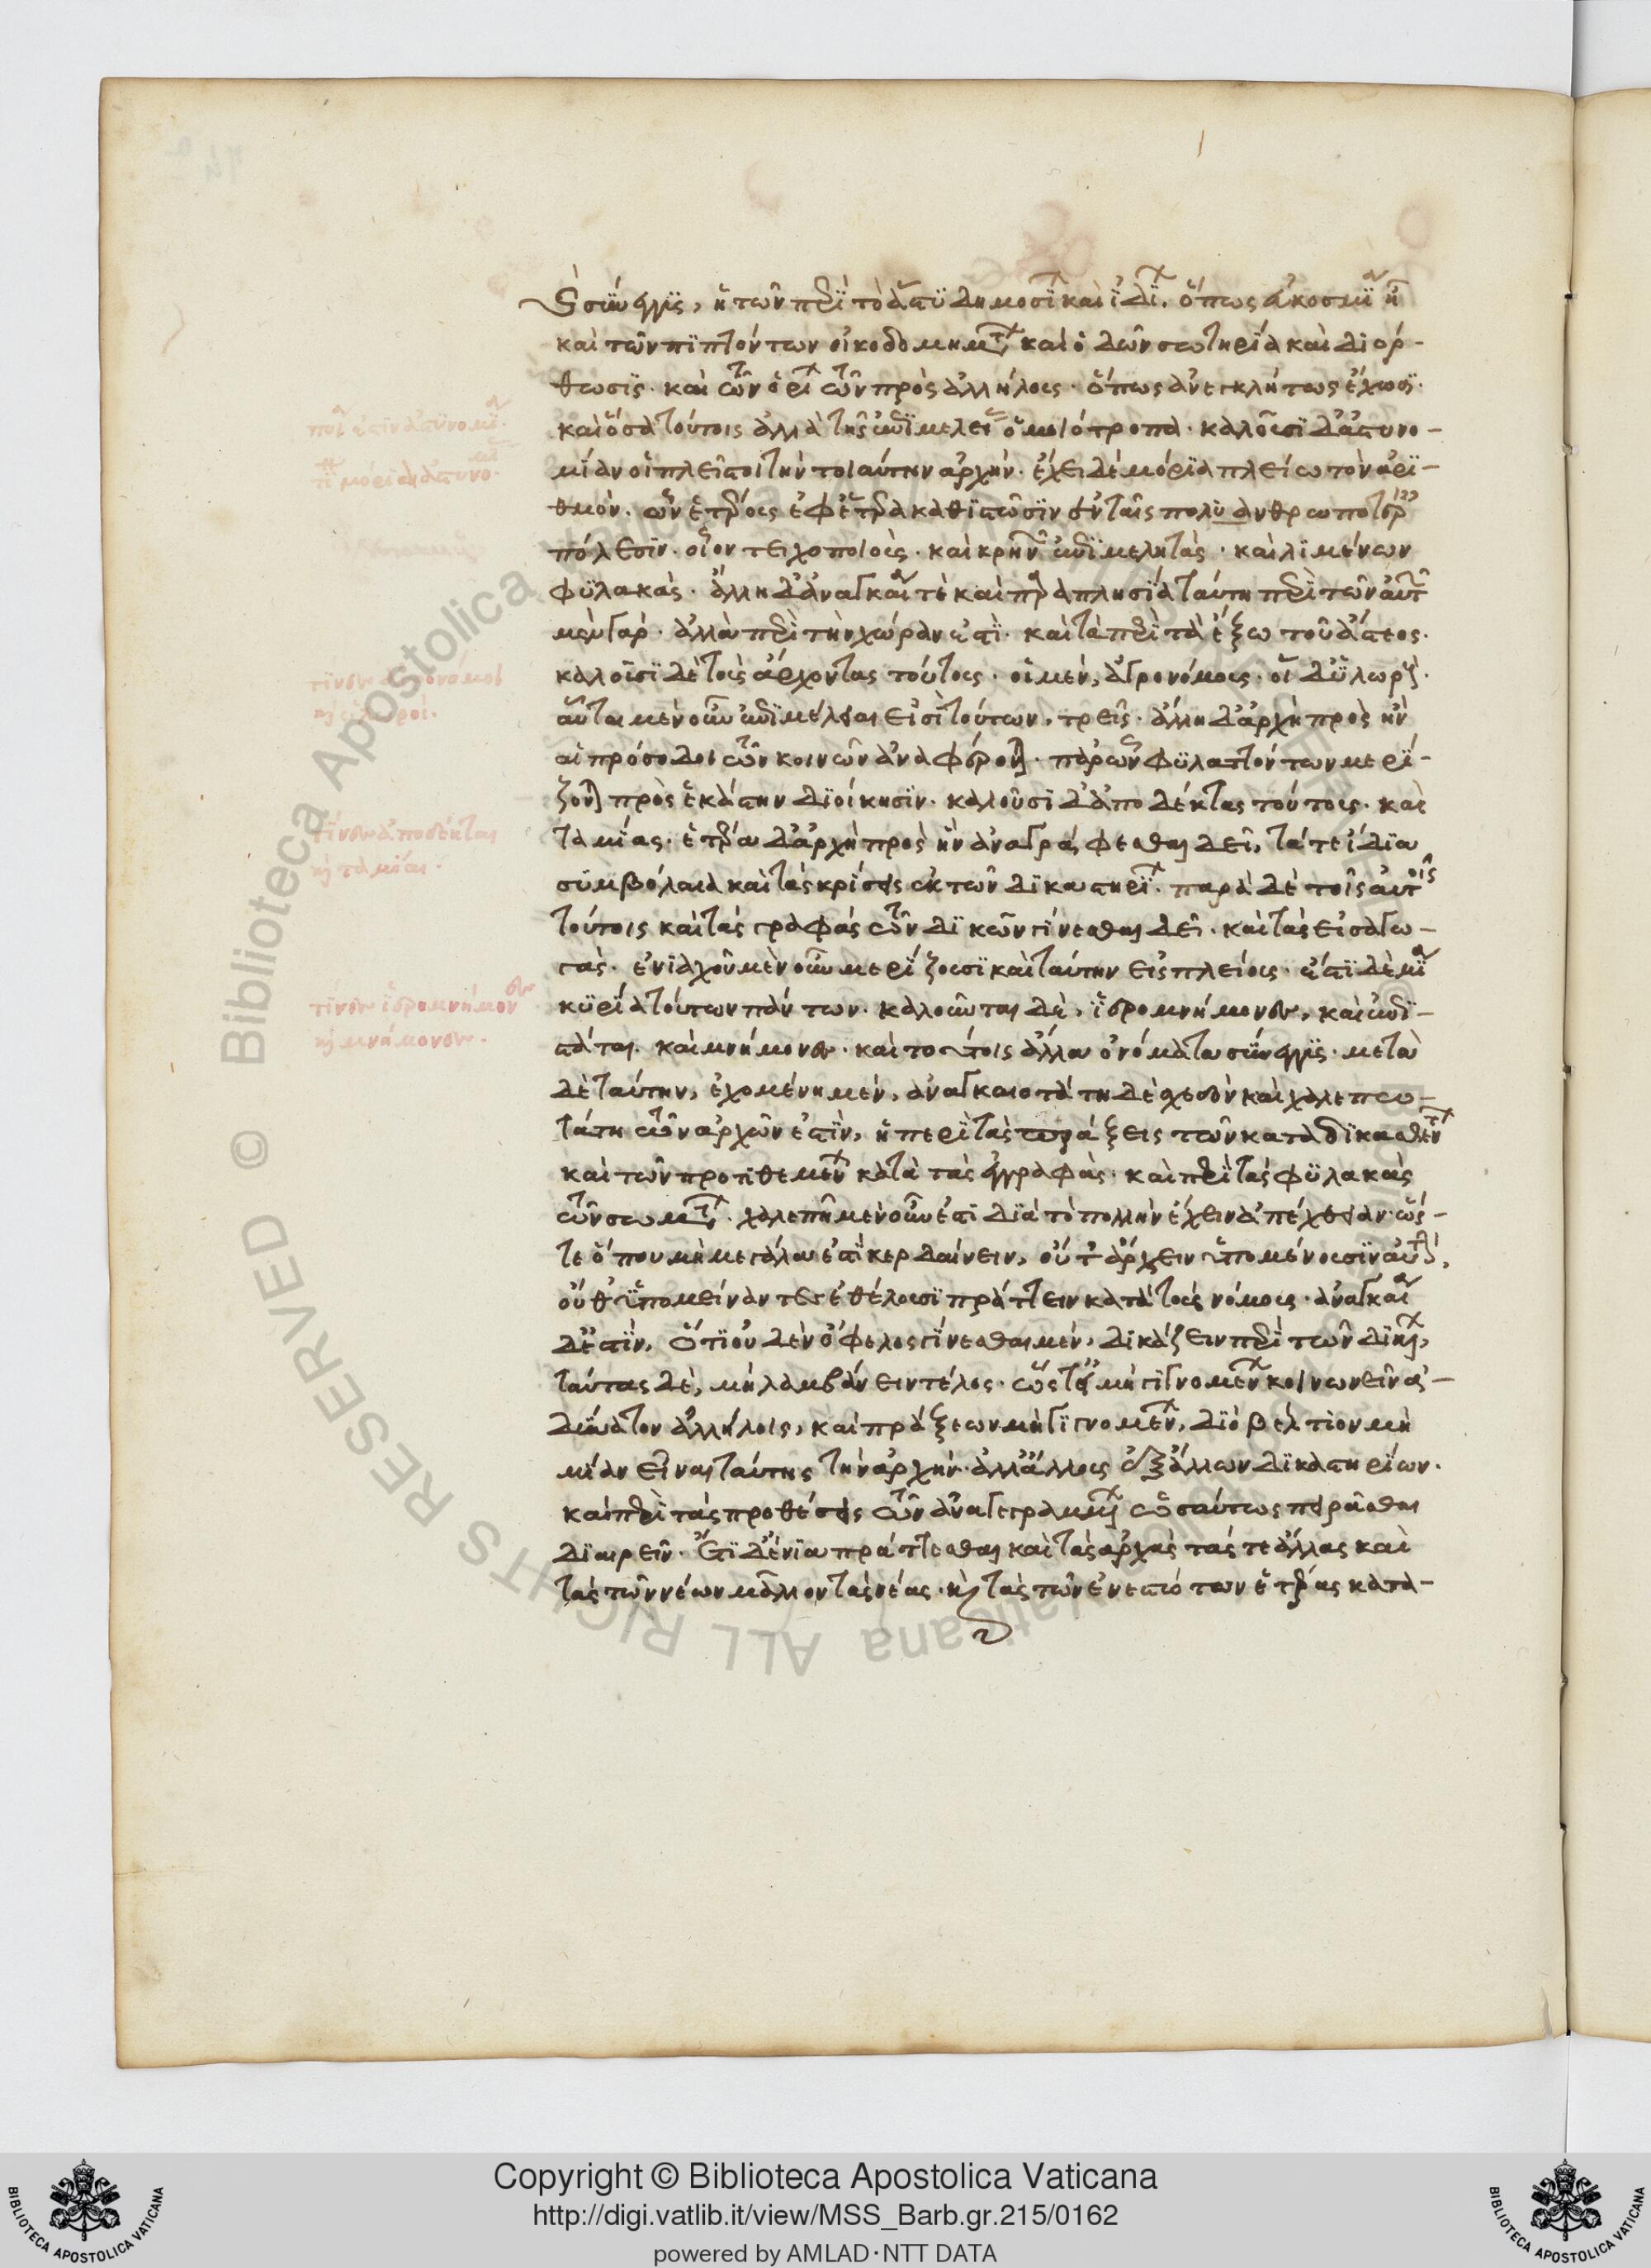 καὶ σύνεγγυς, ἡ τῶν περὶ τὸ ἄστυ δημοσίων καὶ ἰδίων. ὅπως εὐκοσμία ᾖ
καὶ τῶν πιπτόντων οἰκοδομημάτων καὶ ὁδῶν σωτηρία καὶ διόρ-
θωσις. καὶ τῶν ὁρίων τῶν πρὸς ἀλλήλους. ὅπως ἀνεγκλήτως ἔχωσι.
καὶ ὅσα τούτοις ἄλλα τῆς ἐπιμελείας ὁμοιότροπα. καλοῦσι δ' ἀστυνο-
μίαν οἱ πλεῖστοι τὴν τοιαύτην ἀρχήν. ἔχει δὲ μόρια πλείω τὸν ἀρι-
θμόν. ὧν ἑτέρους ἐφ' ἕτερα καθιστῶσιν ἐν ταῖς πολυανθρωποτέραις
πόλεσιν. οἷον τειχοποιοὺς. καὶ κρηνῶν ἐπιμελητὰς. καὶ λιμένων
φύλακάς. ἄλλη δ' ἀναγκαία τὲ καὶ παραπλησία ταύτη περὶ τῶν αὐτῶν
μὲν γάρ. ἀλλὰ περὶ τὴν χώραν ἐστὶ. καὶ τὰ περὶ τὰ ἔξω τοῦ ἄστεος.
καλοῦσι δὲ τοὺς ἄρχοντας τούτους. οἱ μὲν, ἀγρονόμους. οἱ δ' ὑλωρούς.
αὗται μὲν οὖν ἐπιμέλειαι εἰσὶ τούτων, τρεῖς. ἄλλη δ' ἀρχὴ πρὸς ἣν
αἱ πρόσοδοι τῶν κοινῶν ἀναφέρονται. παρ' ὧν φυλαττόντων μερί-
ζονται πρὸς ἑκάστην διοίκησιν. καλοῦσι δ' ἀποδέκτας τούτους. καὶ
ταμίας. ἑτέρα δ' ἀρχὴ πρὸς ἣν ἀναγράφεσθαι δεῖ, τά τε ἴδια
συμβόλαια καὶ τὰς κρίσεις ἐκ τῶν δικαστηρίων. παρὰ δὲ τοῖς αὐτοῖς
τούτοις καὶ τὰς γραφὰς τῶν δικῶν γίνεσθαι δεῖ. καὶ τὰς εἰσαγω-
γάς. ἐνιαχοῦ μὲν οὖν μερίζουσι καὶ ταύτην εἰς πλείους. ἔστι δὲ μία
κυρία τούτων πάντων. καλοῦνται δὲ, ἱερομνήμονες, καὶ ἐπι-
στάται. καὶ μνήμονες. καὶ τούτοις ἄλλα ὀνόματα σύνεγγυς. μετὰ
δὲ ταύτην, ἐχομένη μὲν, ἀναγκαιοτάτη δὲ σχεδὸν καὶ χαλεπω-
τάτη τῶν ἀρχῶν ἐστὶν, ἡ περὶ τὰς πράξεις τῶν καταδικασθέντων
καὶ τῶν προτιθεμένων κατὰ τὰς ἐγγραφάς. καὶ περὶ τὰς φυλακὰς
τῶν σωμάτων. χαλεπὴ μὲν οὖν ἐστὶ διὰ τὸ πολλὴν ἔχειν ἀπέχθειαν. ὥς-
τε ὅπου μὴ μεγάλα ἐστὶ κερδαίνειν, οὔτ' ἄρχειν ὑπομένουσιν αὐτήν,
οὔθ' ὑπομείναντες ἐθέλουσι πράττειν κατὰ τοὺς νόμους. ἀναγκαία
δ' ἐστίν. ὅτι οὐδὲν ὄφελος γίνεσθαι μὲν, δίκας περὶ τῶν δικαίων,
ταύτας δὲ, μὴ λαμβάνειν τέλος. ὥστε μὴ γιγνομένων κοινωνεῖν ἀ-
δύνατον ἀλλήλοις, καὶ πράξεων μὴ γιγνομένων, διὸ βέλτιον μὴ
μίαν εἶναι ταύτης τὴν ἀρχήν. ἀλλ' ἄλλους ἐξ ἄλλων δικαστηρίων.
καὶ περὶ τὰς προθέσεις τῶν ἀναγεγραμμένων ὡσαύτως πειρᾶσθαι
διαιρεῖν. ἔτι δ' ἔνια πράττεσθαι καὶ τὰς ἀρχὰς τάς τε ἄλλας καὶ
τὰς τῶν νέων μᾶλλον τὰς νέας. καὶ τὰς τῶν ἐνεστώτων ἑτέρας κατα-
τίνες ἀποδέκται
καὶ ταμίαι.
τίνες ἱερομνήμονες
καὶ μνήμονες.